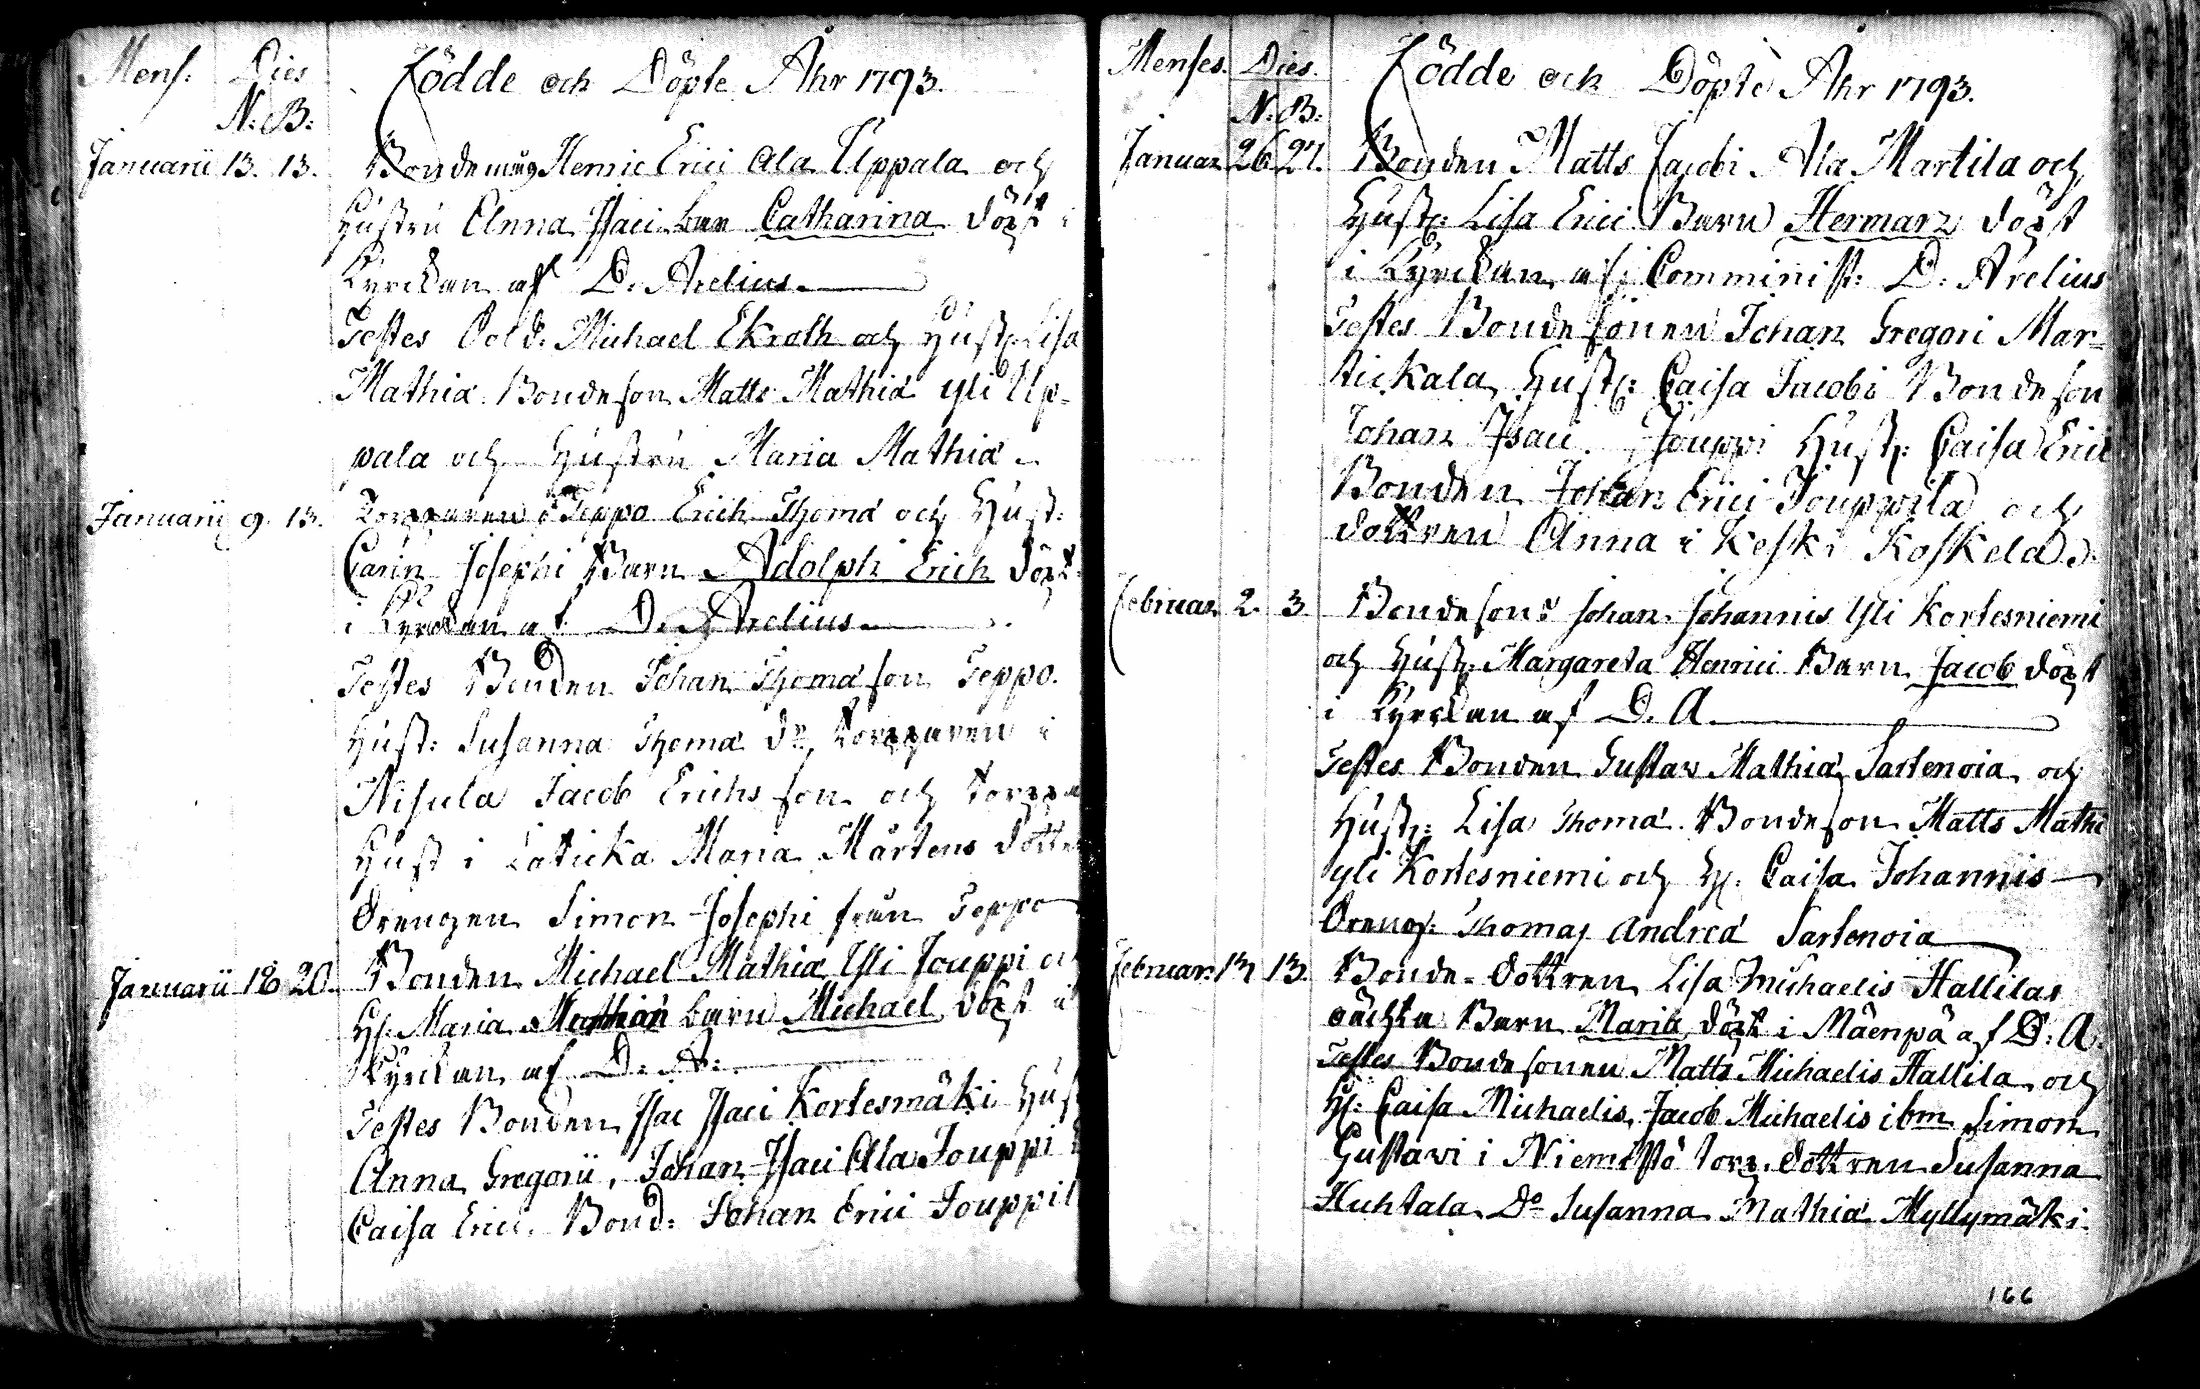 Mens. Dies
Födde och Döpte Åhr 1793.
N: B:
Januarii 13. 13. Bondemåg Henric Erici Ala Uppala och
Hustru Anna Isaci barn Catharina döpt i
Kyrckan af D. Arelius.
Testes Sold. Michael Ekroth och Hustr: Lisa
Mathiæ Bondeson Matts Mathiæ yli Up-
pala och Hustru Maria Mathiæ
Januarii 9. 13. Torpparen i Teppo Erich Thomæ och Hust:
Carin Josephi Barn Adolph Erich döpt
i Kyrckan af D. Arelius
Testes Bonden Johan Thomæ son Teppo.
Hust: Susanna Thomæ do, torpparen i
Nisula Jacob Erichs son och torppa
Hust i Laticka Maria Mårtens dotte
Drengen Simon Josephi från Teppo
Januarii 18 20. Bonden Michael Mathiæ Yli Jouppi och
H: Maria barn Michael döpt i
Kyrckan af D. A:
Testes Bonden Isac Isaci Kortesmäki Hus
Anna Gregorii, Johan Isaci Ala Jouppi
Caisa Erici. Bond: Johan Erici Jouppil
Menses. Dies.
Födde och Döpte Åhr 1793.
N. B:
Januar. 26 27. Bonden Matts Jacobi Ala Martila och
Hustr: Lisa Erici Barn Herman döpt
i Kyrckan af Comminist: D. Arelius
Testes Bondesonen Johan Gregori Mar-
tickala, Hustr: Caisa Jacobi Bondeson
Johan Isaci Jouppi Hustr: Caisa Erici
Bonden Johan Erici Jouppila och
dottren Anna i Keski Koskela.
Februar. 2. 3. Bondesons Johan Johannis Yli Kortesniemi
och Hustr: Margareta Henrici Barn Jacob döpt
i Kyrckan af D. A.
Testes Bonden Gustav Mathiæ Sartenoia och
Hustr: Lisa Thomæ. Bondeson Matts Mathi
yli Kortesniemi och H: Caisa Johannis
Dreng: Thomas Andreæ Sartenoia
Februar. 13. Bonde-dottren Lisa Michaelis Hallilas
oächta Barn Maria döpt i Mäenpä af D: A.
Testes Bondesonen Matts Michaelis Hallila och
H: Caisa Michaelis, Jacob Michaelis ibm Simon
Gustavi i Niemistö torp. dottren Susanna
Huhtala Do Susanna Mathiæ Myllymäki.
166